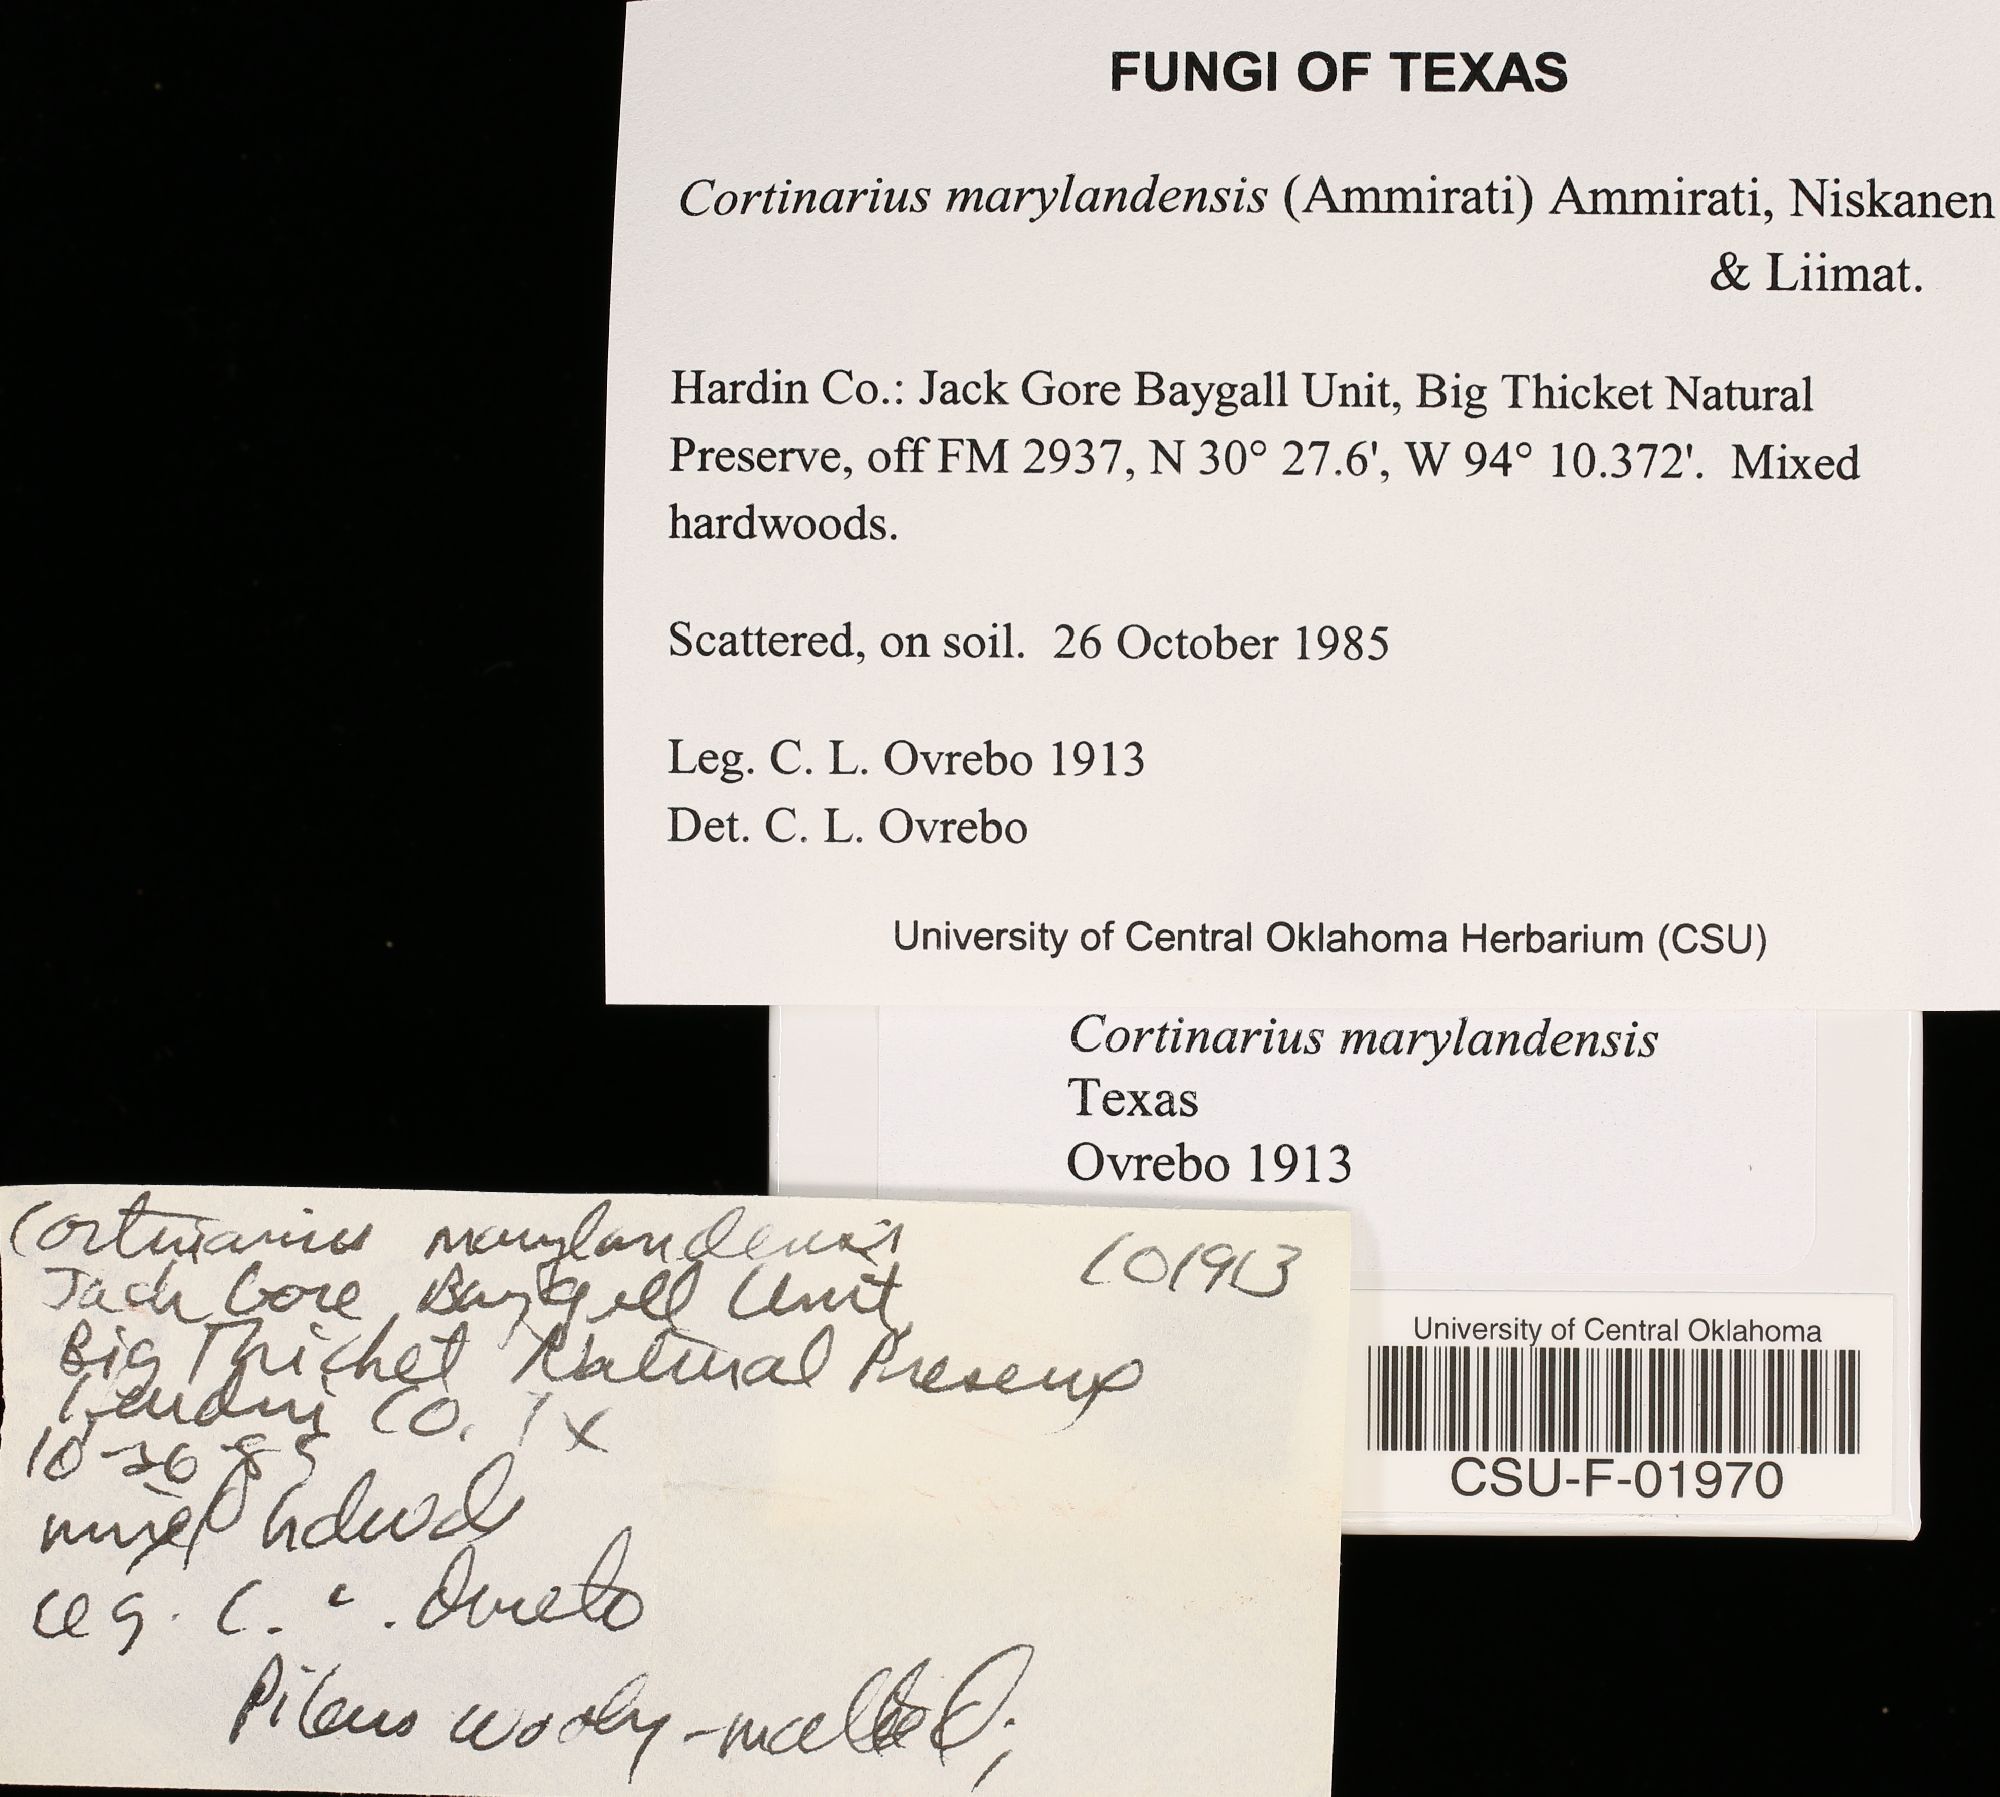 FUNGI OF TEXAS
Cortinarius marylandensis (Ammirati) Ammirati, Niskanen
& Liimat.
Hardin Co.: Jack Gore Baygall Unit, Big Thicket Natural
Preserve, off FM 2937, N 30° 27.6', W 94° 10.372'. Mixed
hardwoods.
Scattered, on soil. 26 October 1985
Leg. C. L. Ovrebo 1913
Det. C. L. Ovrebo
University of Central Oklahoma Herbarium (CSU)
Cortinarius marylandensis
Texas
Ovrebo 1913
University of Central Oklahoma
CSU-F-01970
Cortinarius marylandensis
CO1913
Jack Gore Baygall Unit
Big Thicket Natural Preserve
Hardin Co. Tx
10-26-85
mixed hdwd
Leg. C. L. Ovrebo
Pileus wooly-matted;